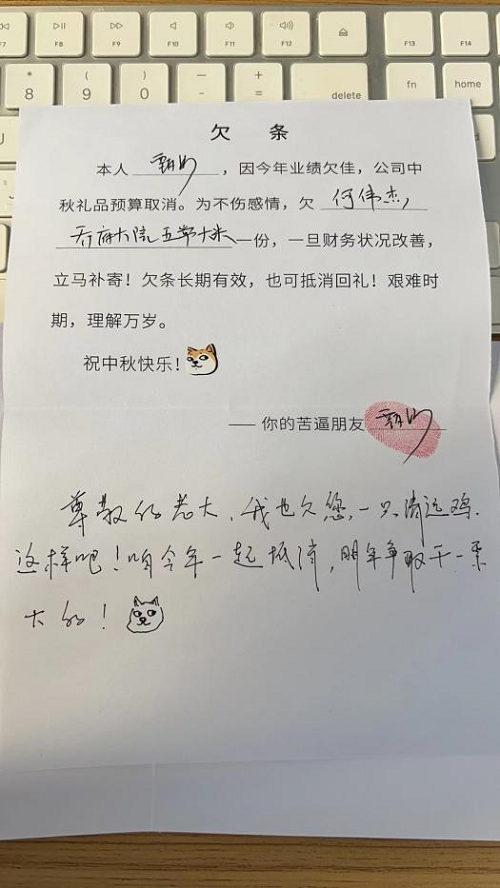 F7 F8 F9 F10 F11 F12 F13 F14
* ( ) — +
8 9 0 - = delete fn home
欠 条
本人 ，因今年业绩欠佳，公司中
秋礼品预算取消。为不伤感情，欠 何伟杰，
大院五常大米一份，一旦财务状况改善，
立马补寄！欠条长期有效，也可抵消回礼！艰难时
期，理解万岁。
祝中秋快乐！
—— 你的苦逼朋友
尊敬的老大，我也欠您一只清远鸡.
这样吧！咱今年一起抵消，明年争取干一票
大的！